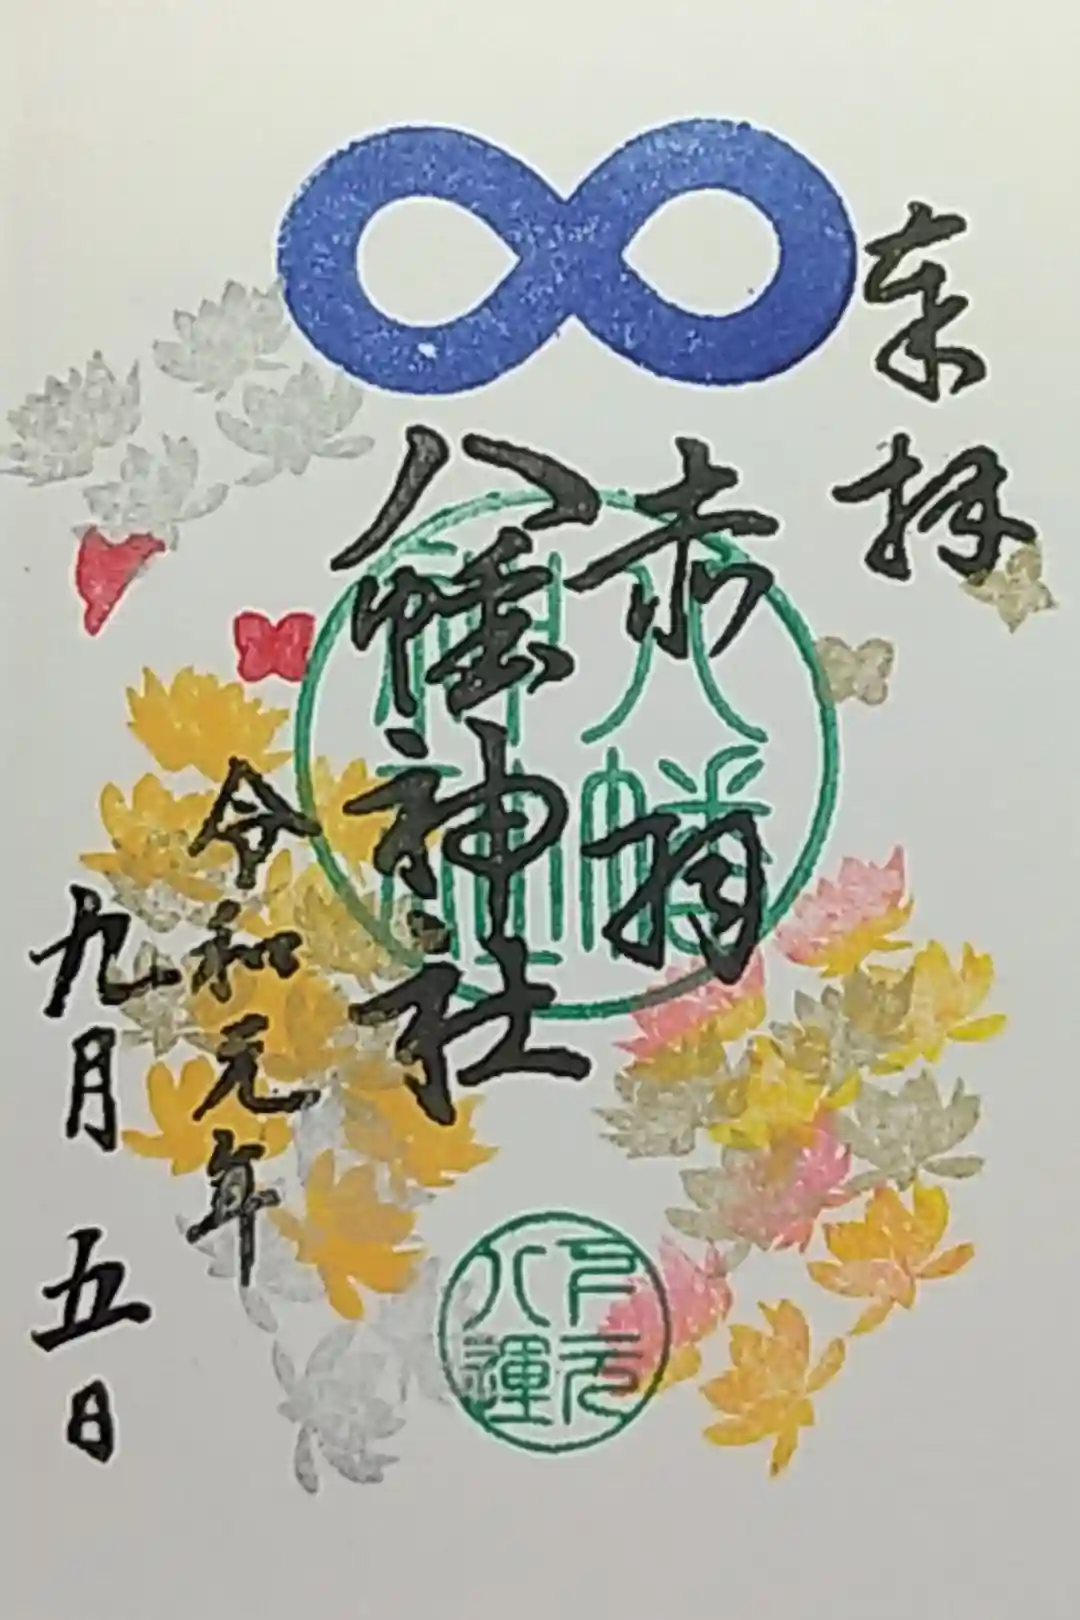 奉拝
赤羽
八幡神社
令和元年
九月五日
八幡
神社
下元
八運